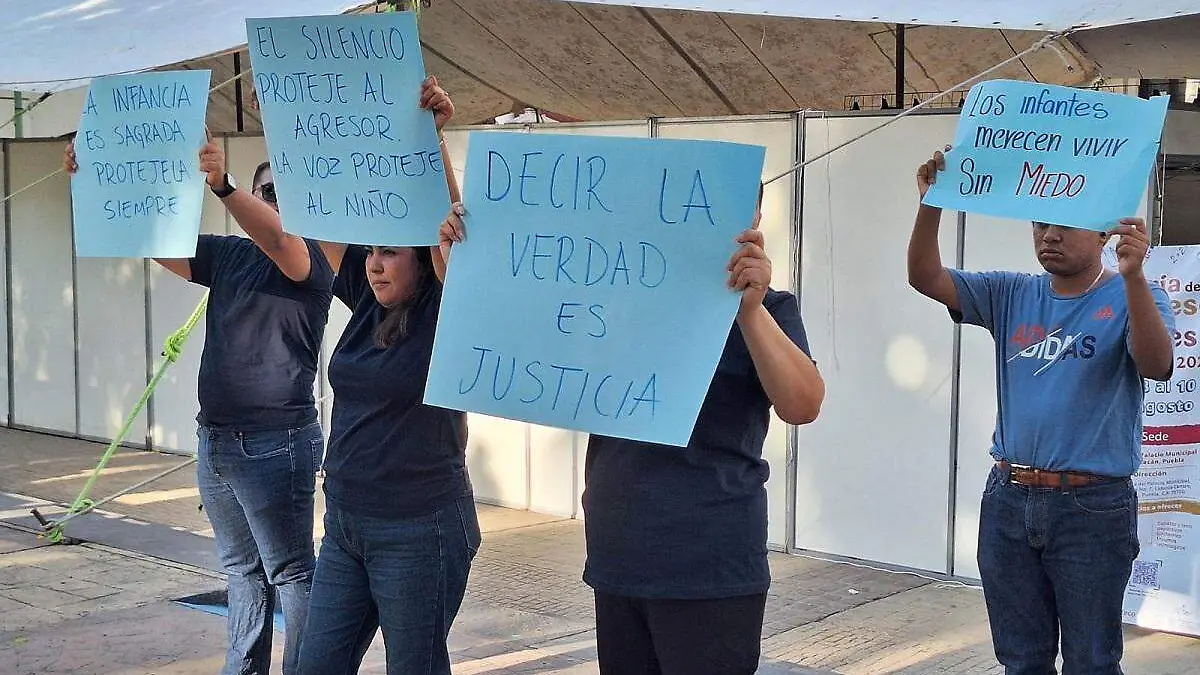 LA INFANCIA
ES SAGRADA
PROTEJELA
SIEMPRE
EL SILENCIO
PROTEJE AL
AGRESOR.
LA VOZ PROTEJE
AL NIÑO
DECIR LA
VERDAD
ES
JUSTICIA
Los infantes
merecen vivir
Sin MIEDO
ADIDAS
al 10
Sede
Palacio Municipal
Puebla
Dirección